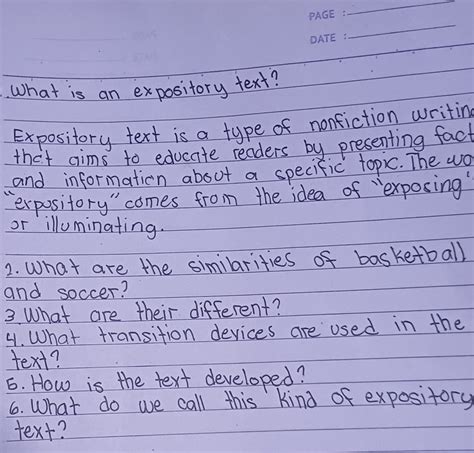 PAGE :
DATE :
What is an expository text?
Expository text is a type of nonfiction writin
that aims to educate readers by presenting fact
and information about a specific topic. The wo
"expository" comes from the idea of "exposing"
or illuminating.
2. What are the similarities of basketball
and soccer?
3. What are their different?
4. What transition devices are used in the
text?
5. How is the text developed?
6. What do we call this kind of expository
text?